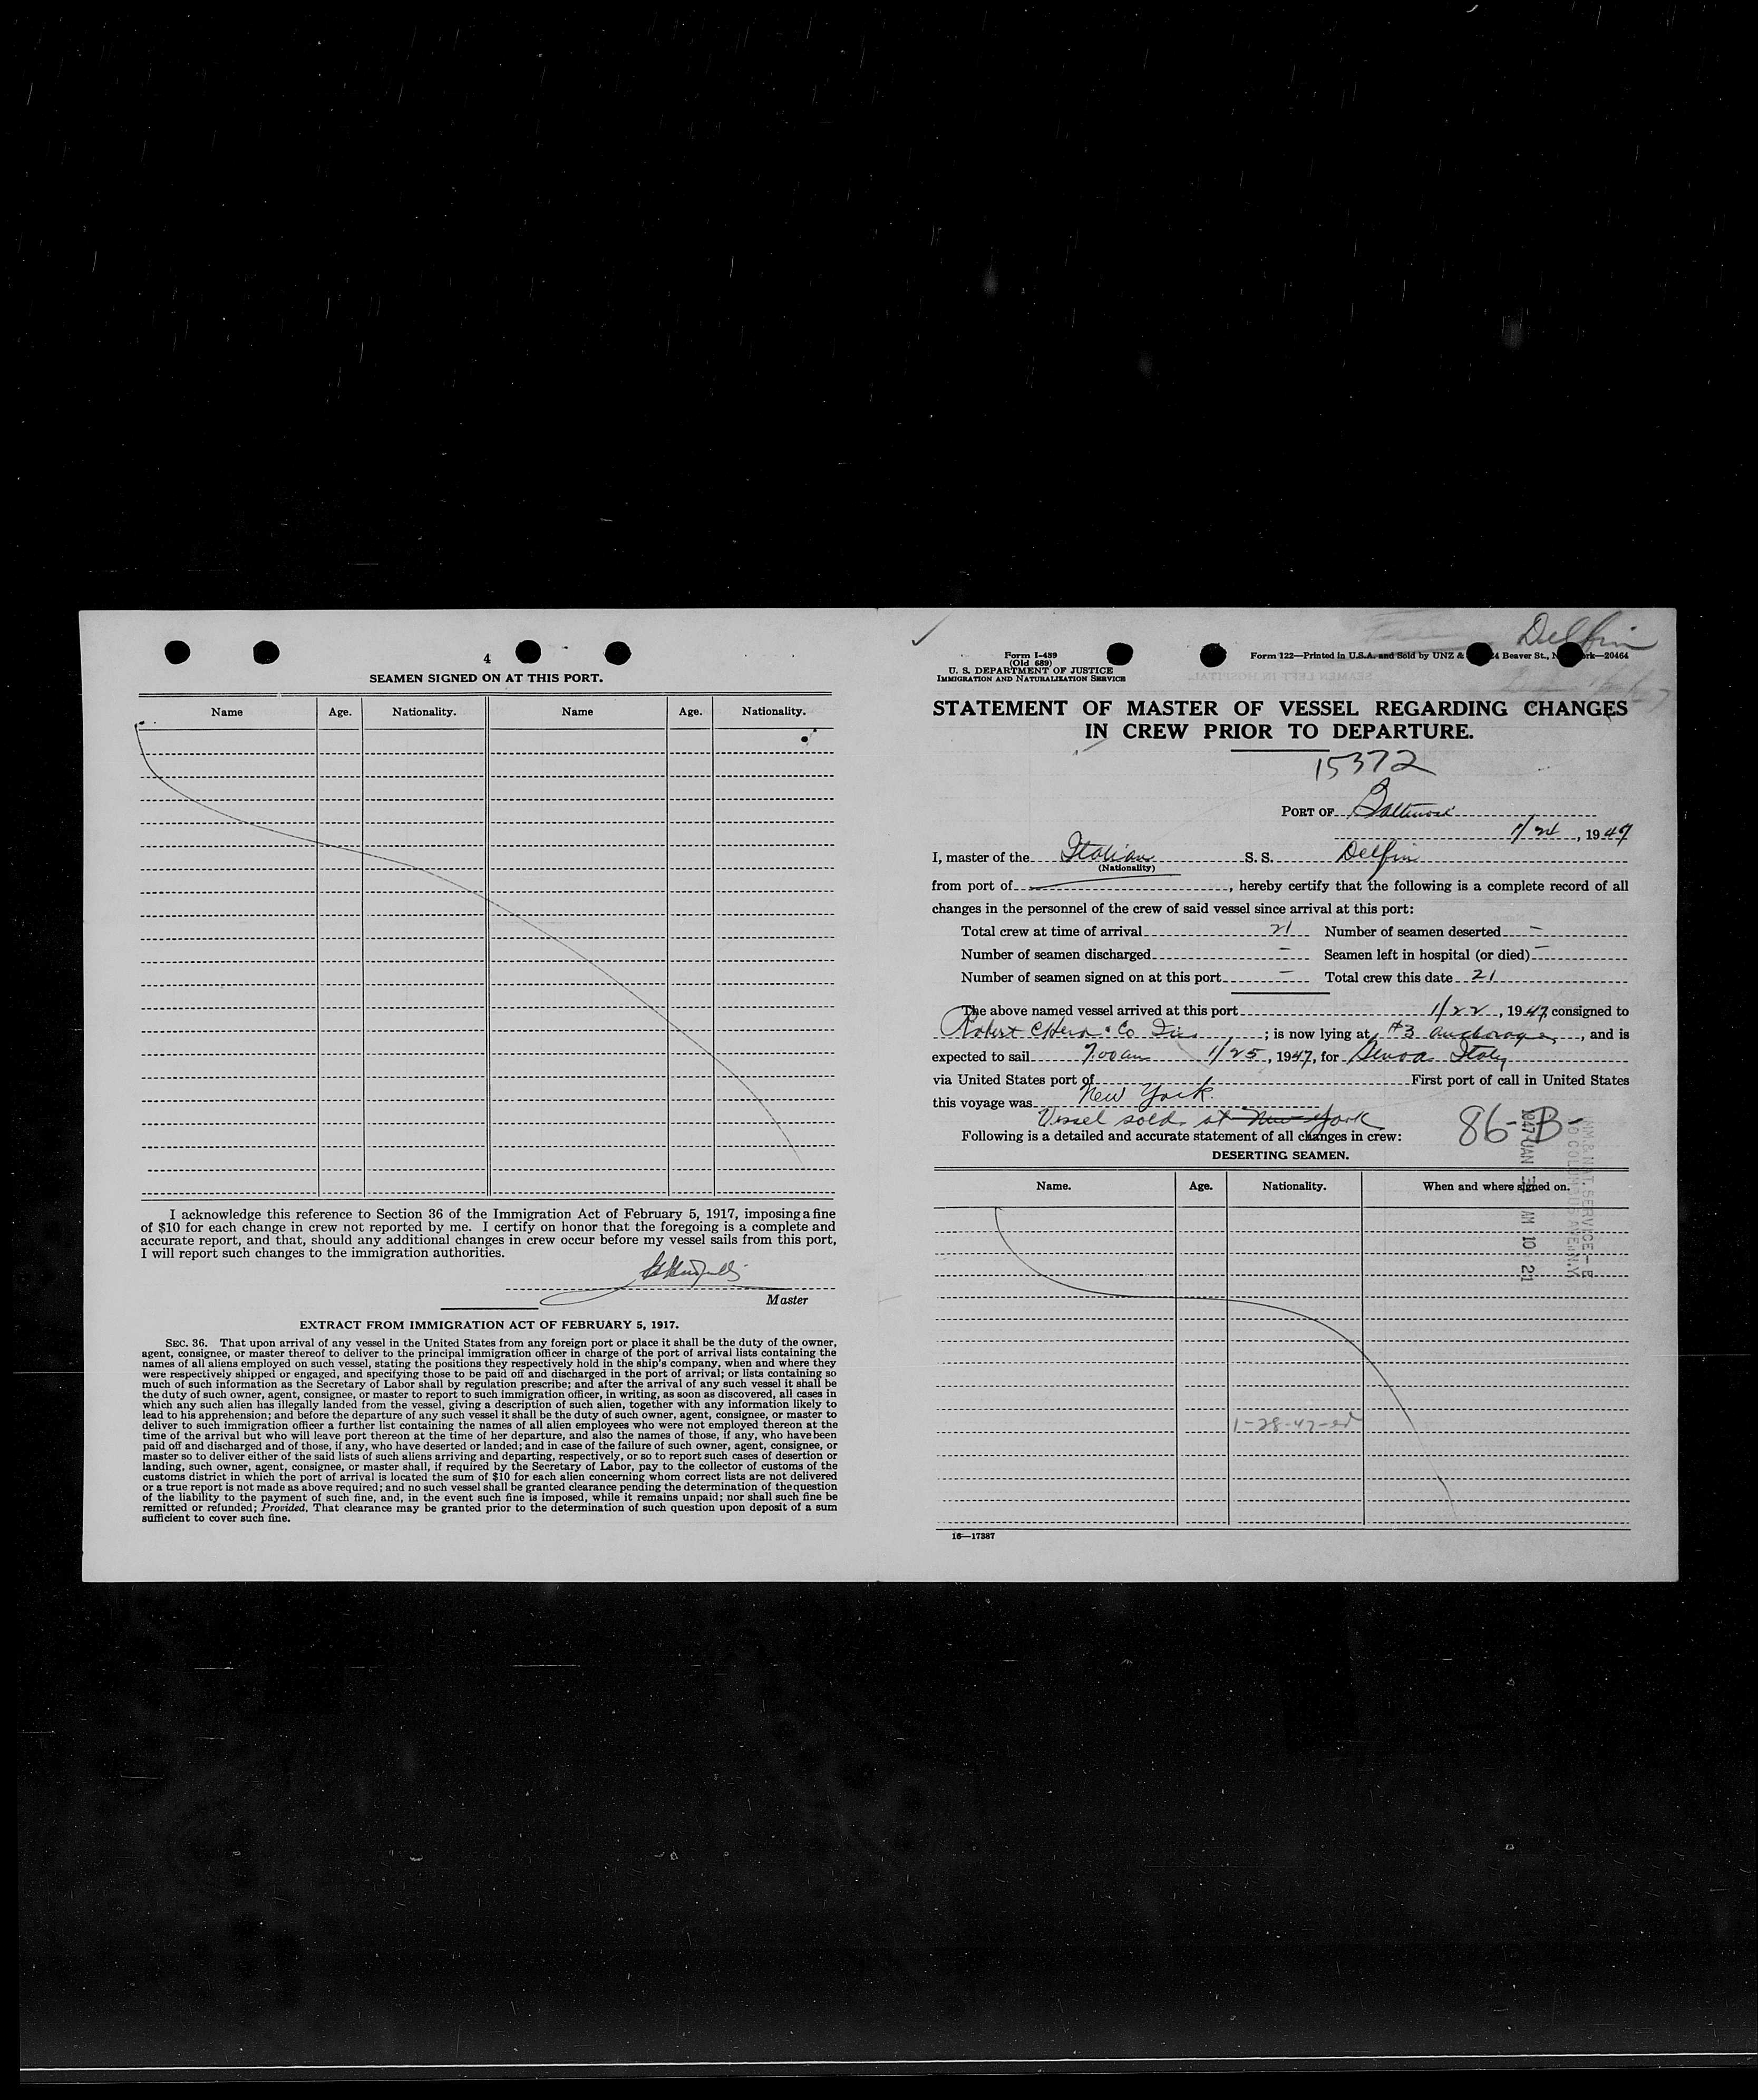 4
SEAMEN SIGNED ON AT THIS PORT.
Name Age. Nationality. Name Age. Nationality.
I acknowledge this reference to Section 36 of the Immigration Act of February 5, 1917, imposing a fine
of $10 for each change in crew not reported by me. I certify on honor that the foregoing is a complete and
accurate report, and that, should any additional changes in crew occur before my vessel sails from this port,
I will report such changes to the immigration authorities.
Master
EXTRACT FROM IMMIGRATION ACT OF FEBRUARY 5, 1917.
SEC. 36. That upon arrival of any vessel in the United States from any foreign port or place it shall be the duty of the owner,
agent, consignee, or master thereof to deliver to the principal immigration officer in charge of the port of arrival lists containing the
names of all aliens employed on such vessel, stating the positions they respectively hold in the ship's company, when and where they
were respectively shipped or engaged, and specifying those to be paid off and discharged in the port of arrival; or lists containing so
much of such information as the Secretary of Labor shall by regulation prescribe; and after the arrival of any such vessel it shall be
the duty of such owner, agent, consignee, or master to report to such immigration officer, in writing, as soon as discovered, all cases in
which any such alien has illegally landed from the vessel, giving a description of such alien, together with any information likely to
lead to his apprehension; and before the departure of any such vessel it shall be the duty of such owner, agent, consignee, or master to
deliver to such immigration officer a further list containing the names of all alien employees who were not employed thereon at the
time of the arrival but who will leave port thereon at the time of her departure, and also the names of those, if any, who have been
paid off and discharged and of those, if any, who have deserted or landed; and in case of the failure of such owner, agent, consignee, or
master so to deliver either of the said lists of such aliens arriving and departing, respectively, or so to report such cases of desertion or
landing, such owner, agent, consignee, or master shall, if required by the Secretary of Labor, pay to the collector of customs of the
customs district in which the port of arrival is located the sum of $10 for each alien concerning whom correct lists are not delivered
or a true report is not made as above required; and no such vessel shall be granted clearance pending the determination of the question
of the liability to the payment of such fine, and, in the event such fine is imposed, while it remains unpaid; nor shall such fine be
remitted or refunded; Provided, That clearance may be granted prior to the determination of such question upon deposit of a sum
sufficient to cover such fine.
Delfin
Form I-489
(Old 689)
U. S. DEPARTMENT OF JUSTICE
IMMIGRATION AND NATURALIZATION SERVICE
Form 122—Printed in U.S.A. and Sold by UNZ & 4 Beaver St., N rk—20464
STATEMENT OF MASTER OF VESSEL REGARDING CHANGES
IN CREW PRIOR TO DEPARTURE.
15372
PORT OF Baltimore
1/24, 1947
I, master of the Italian S. S. Delfin
(Nationality)
from port of , hereby certify that the following is a complete record of all
changes in the personnel of the crew of said vessel since arrival at this port:
Total crew at time of arrival 21 Number of seamen deserted –
Number of seamen discharged – Seamen left in hospital (or died) –
Number of seamen signed on at this port – Total crew this date 21
The above named vessel arrived at this port 1/22, 1947, consigned to
Robert C Herd & Co Inc ; is now lying at #3 anchorage, and is
expected to sail 7.00 am 1/25, 1947, for Genoa Italy
via United States port of First port of call in United States
this voyage was New York.
Vessel sold at New York
Following is a detailed and accurate statement of all changes in crew:
86-B-
DESERTING SEAMEN.
Name. Age. Nationality. When and where signed on.
1-28-47-
16—17387